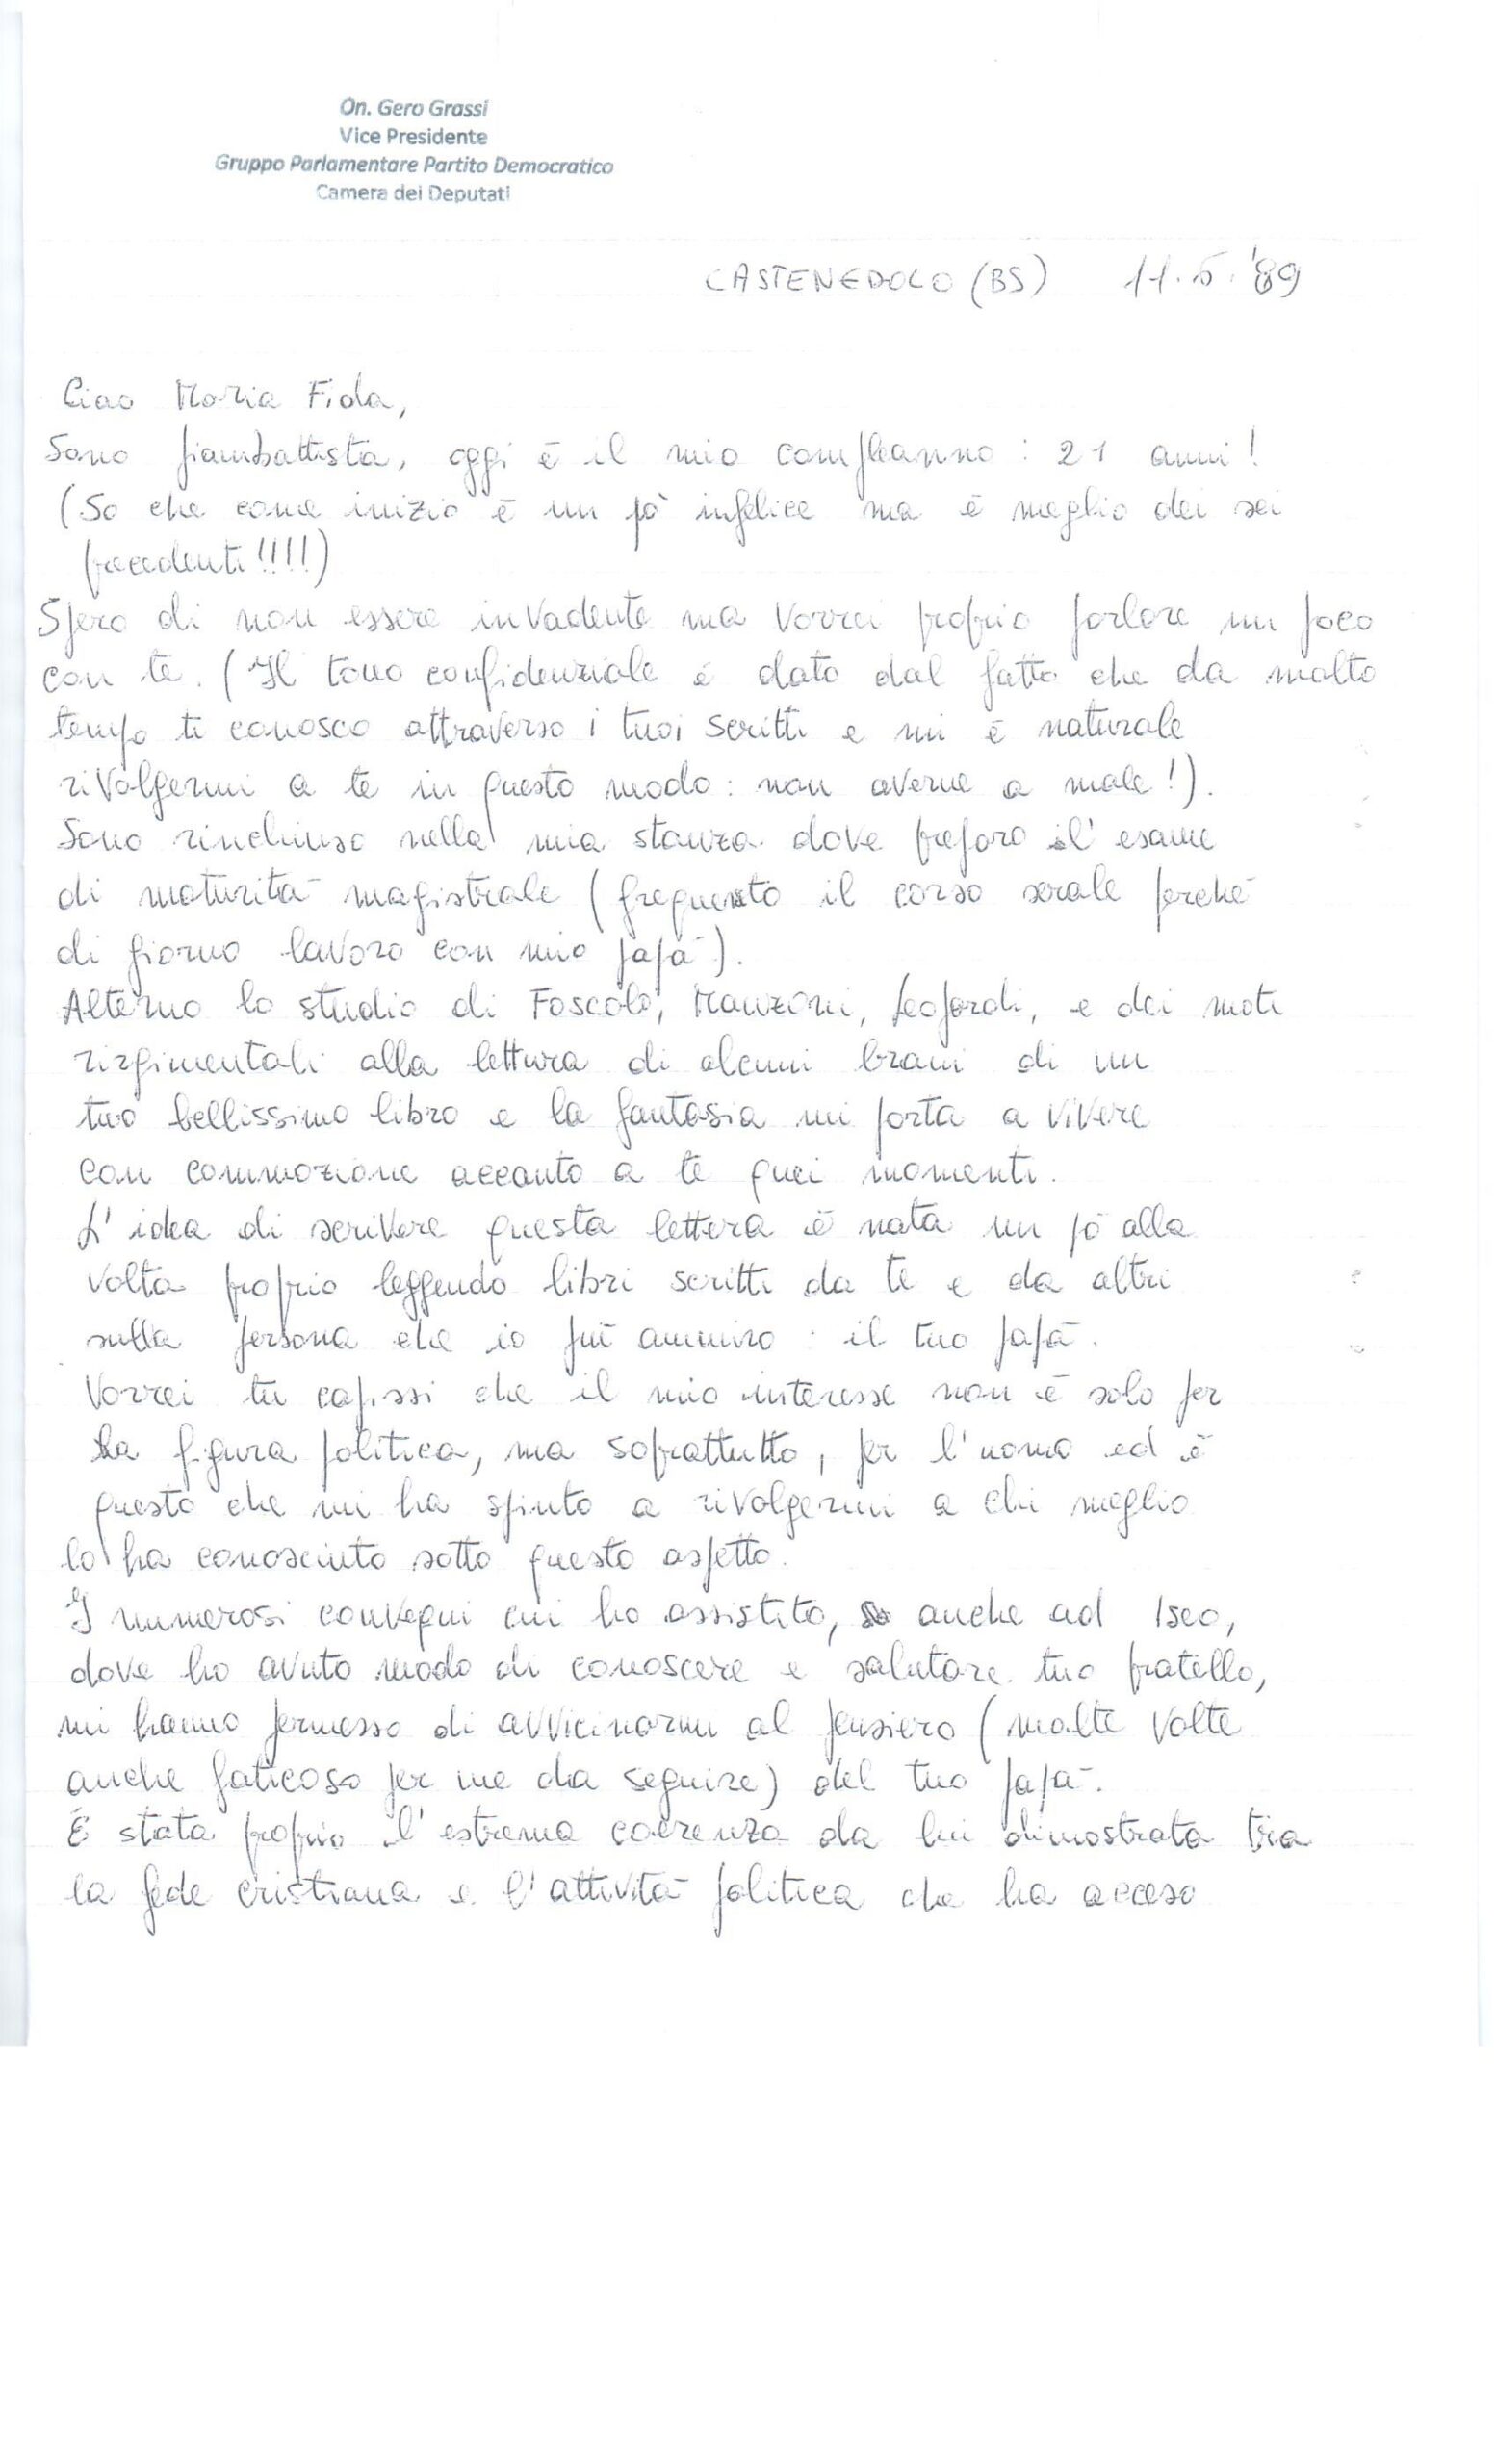 On. Gero Grassi
Vice Presidente
Gruppo Parlamentare Partito Democratico
Camera dei Deputati
CASTENEDOLO (BS) 11.5.'89
Ciao Maria Fida,
Sono Giambattista, oggi è il mio compleanno: 21 anni!
(So che come inizio è un pò infelice ma è meglio dei sei
precedenti!!!!)
Spero di non essere invadente ma vorrei proprio parlare un poco
con te. (Il tono confidenziale è dato dal fatto che da molto
tempo ti conosco attraverso i tuoi scritti e mi è naturale
rivolgermi a te in questo modo: non averne a male!).
Sono rinchiuso nella mia stanza dove preparo l'esame
di maturità magistrale (frequento il corso serale perchè
di giorno lavoro con mio papà).
Alterno lo studio di Foscolo, Manzoni, Leopardi, e dei moti
rirgimentali alla lettura di alcuni brani di un
tuo bellissimo libro e la fantasia mi porta a vivere
con commozione accanto a te quei momenti.
L'idea di scrivere questa lettera è nata un pò alla
volta proprio leggendo libri scritti da te e da altri
sulla persona che io più ammiro: il tuo papà.
Vorrei tu capissi che il mio interesse non è solo per
la figura politica, ma soprattutto, per l'uomo ed è
questo che mi ha spinto a rivolgermi a chi meglio
lo ha conosciuto sotto questo aspetto.
I numerosi convegni cui ho assistito, anche ad Iseo,
dove ho avuto modo di conoscere e salutare tuo fratello,
mi hanno permesso di avvicinarmi al pensiero (molte volte
anche faticoso per me da seguire) del tuo papà.
È stata proprio l'estrema coerenza da lui dimostrata tra
la fede cristiana e l'attività politica che ha acceso